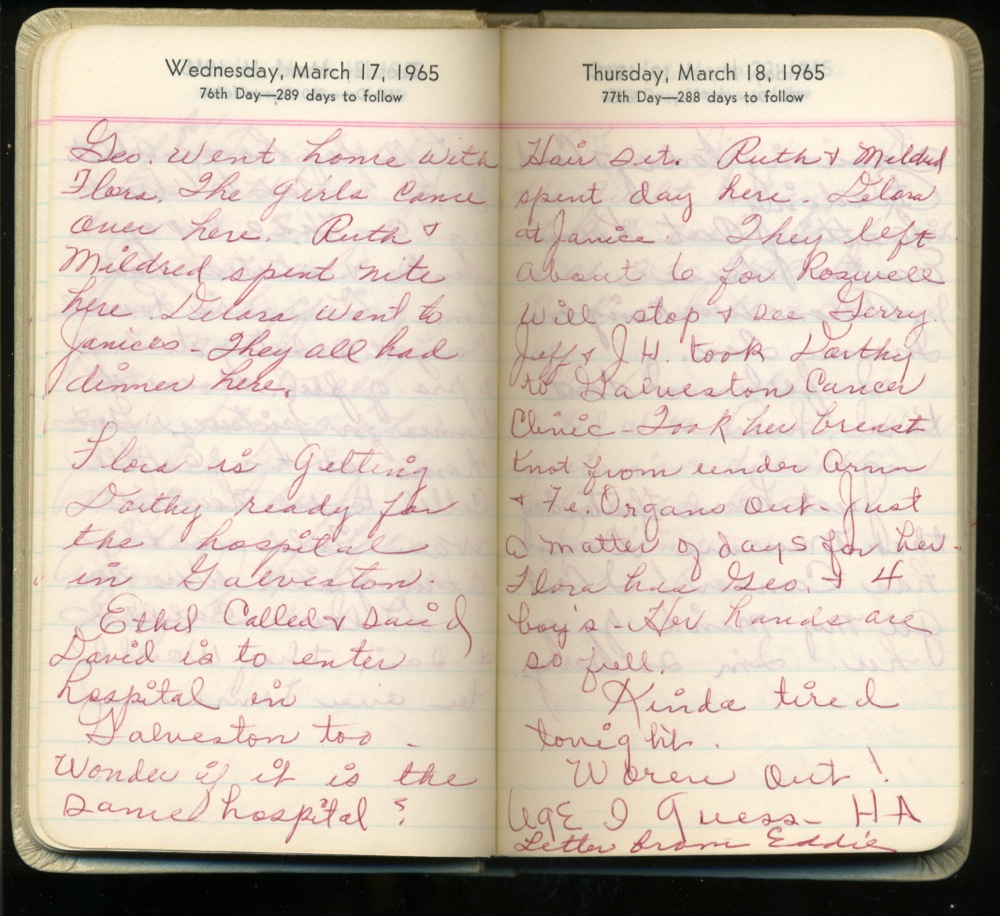 Wednesday, March 17, 1965
76th Day—289 days to follow
Geo. went home with
Flora. The girls came
over here. Ruth &
Mildred spent nite
here. Delora went to
Janices - They all had
dinner here.
Flora is getting
Dorthy ready for
the hospital
in Galveston.
Ethel Called & said
David is to enter
hospital in
Galveston too -
Wonder if it is the
same hospital?
Thursday, March 18, 1965
77th Day—288 days to follow
Hair set. Ruth & Mildred
spent day here. Delora
at Janice. They left
about 6 for Roswell
will stop & see Gerry.
Jeff & J.H. took Dorthy
to Galveston Cancer
Clinic - Took her breast
Knot from under Arm
& Fe. Organs out - Just
a matter of days for her.
Flora has Geo. & 4
boy's - Her hands are
so full.
Kinda tired
tonight.
Woren out!
Age I Guess - HA
Letter from Eddie